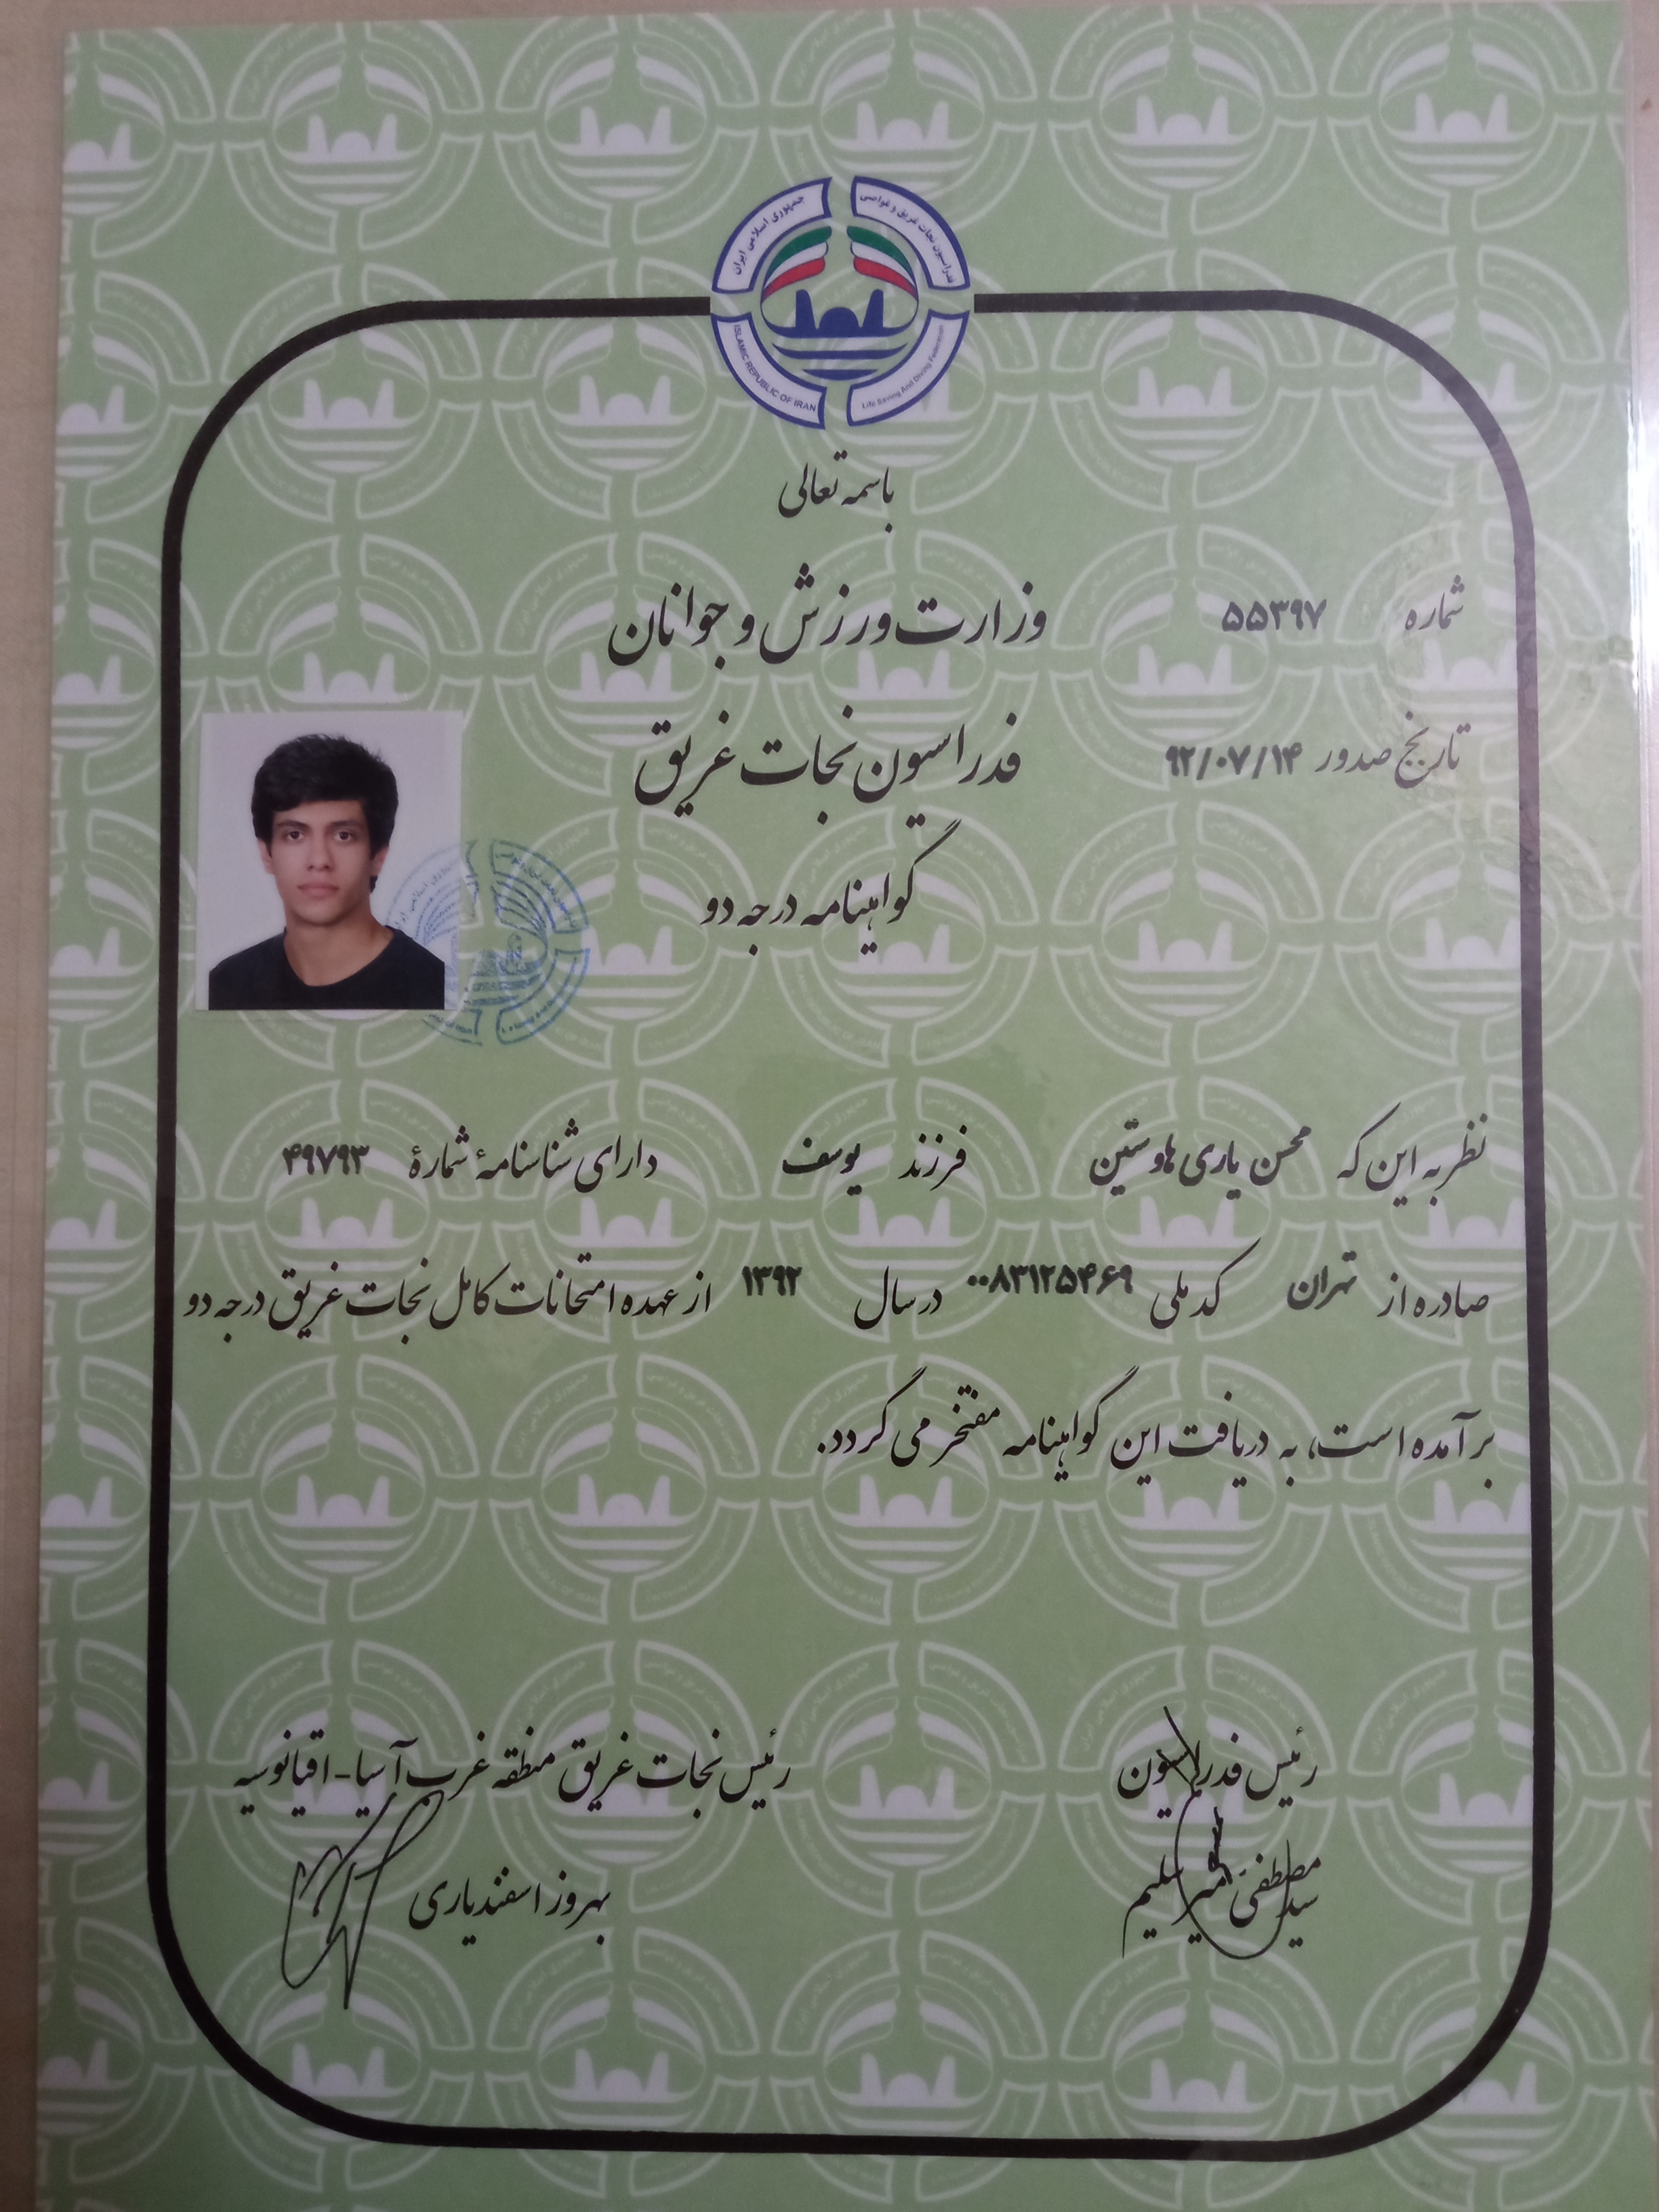 جمهوری اسلامی ایران
فدراسیون نجات غریق و غواصی
ISLAMIC REPUBLIC OF IRAN
Life Saving And Diving Federation
باسمه تعالی
شماره ۵۵۳۹۷
وزارت ورزش و جوانان
تاریخ صدور ۹۲/۰۷/۱۴
فدراسیون نجات غریق
گواهینامه درجه دو
نظر به این که محسن یاری هاوستین فرزند یوسف دارای شناسنامهٔ شمارهٔ ۴۹۷۹۳
صادره از تهران کد ملی ۰۰۸۳۱۲۵۴۶۹ در سال ۱۳۹۲ از عهده امتحانات کامل نجات غریق درجه دو
برآمده است، به دریافت این گواهینامه مفتخر می گردد.
رئیس فدراسیون
سید مصطفی میرسلیم
رئیس نجات غریق منطقه غرب آسیا-اقیانوسیه
بهروز اسفندیاری